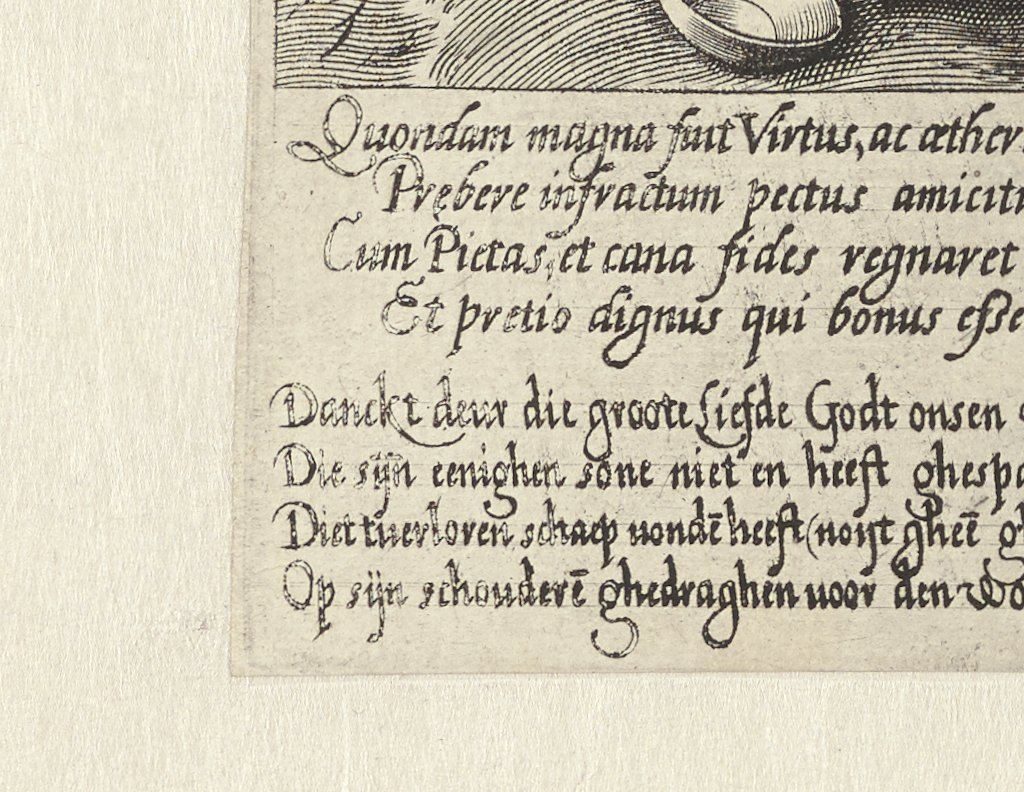 Quondam magna fuit Virtus, ac æther
Prębere infractum pectus amiciti
Cum Pietas, et cana fides regnaret
Et pretio dignus qui bonus esse
Danckt deur die groote Liefde Godt onsen
Die sijn eenighen sone niet en heeft ghespa
Diet tuerloren schaep uondē heeft (noijt gheē g
Op sijn schouderē ghedraghen uoor den Wo